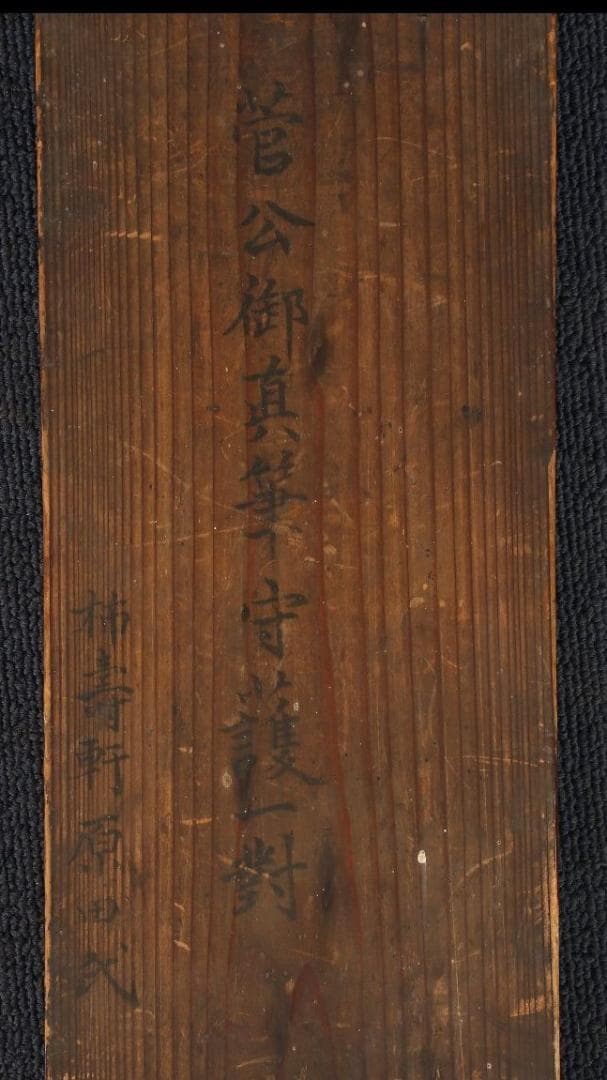 菅公御真筆守護一對
柿壽軒原田氏